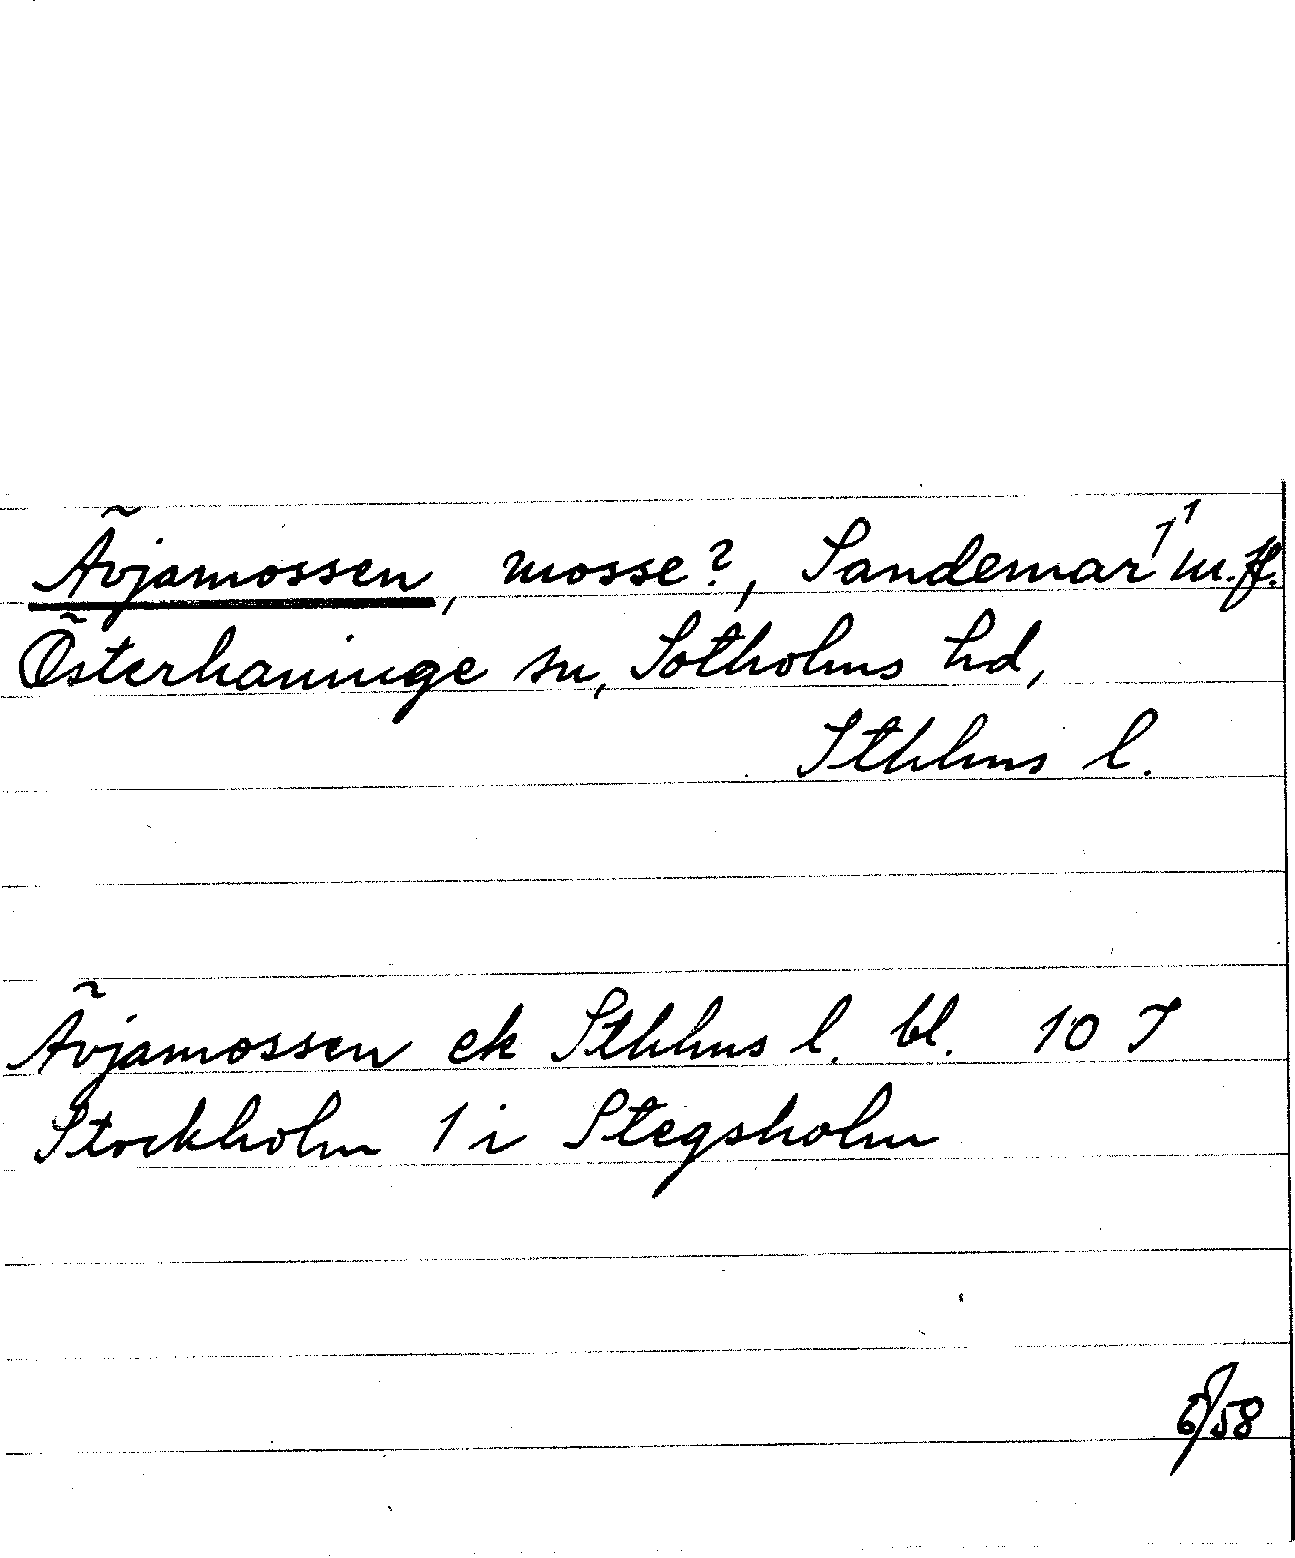 Ävjamossen, mosse?, Sandemar 1¹ m.fl.
Österhaninge sn, Sotholms hd,
Sthlms l.
Ävjamossen ek Sthlms l. bl. 10 I
Stockholm 1 i Stegsholm